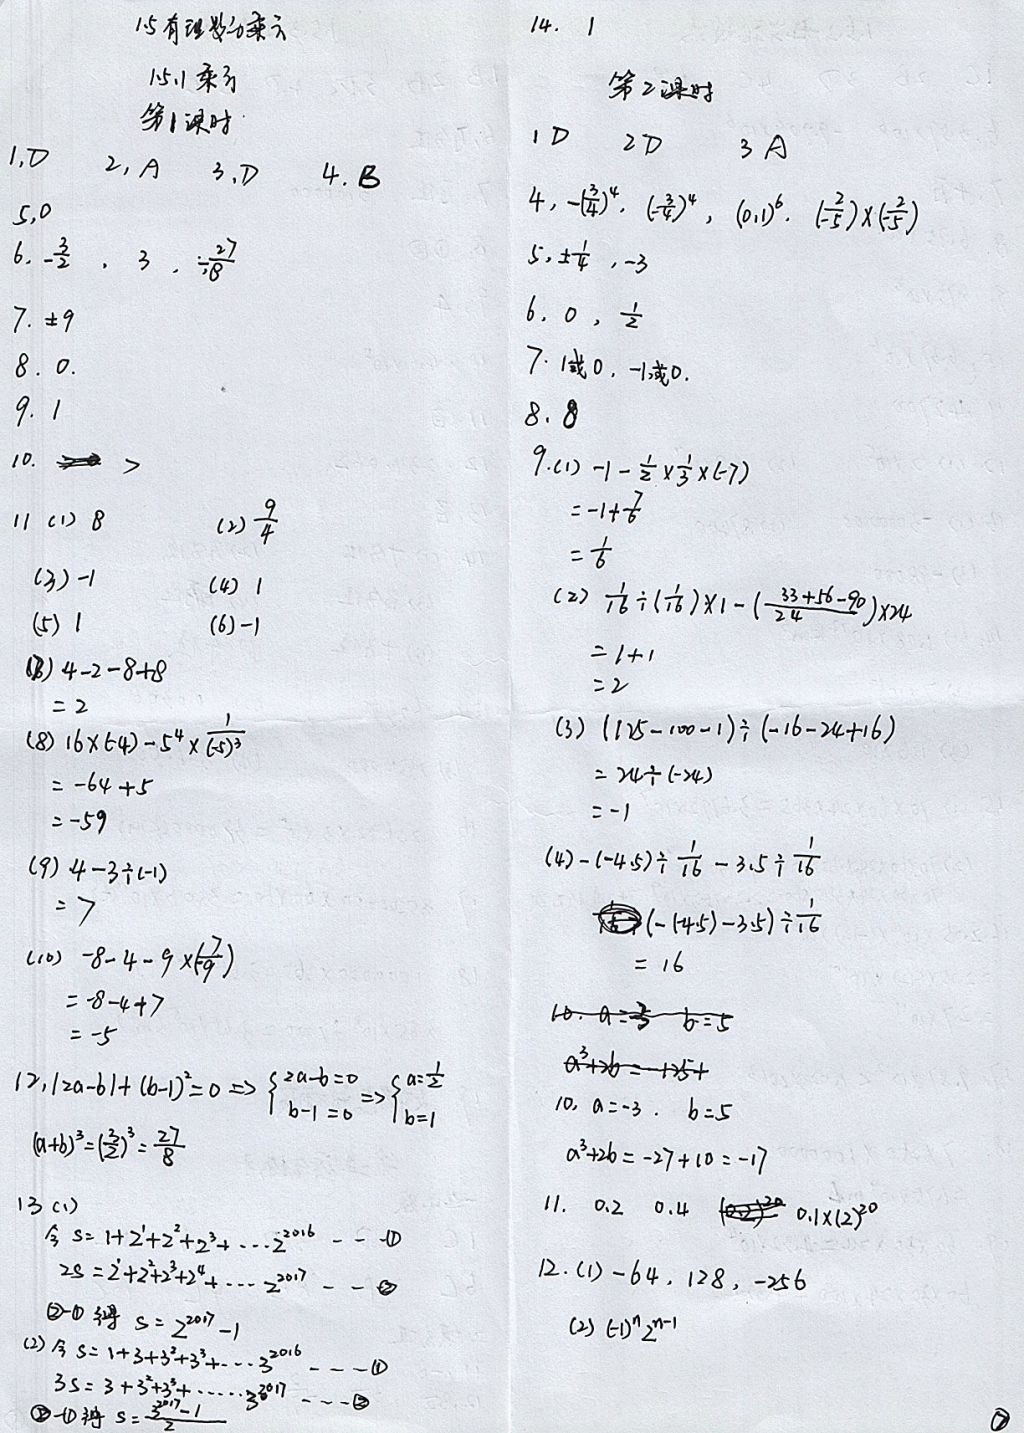 1.5 有理数的乘方
1.5.1 乘方
第1课时
1. D 2. A 3. D 4. B
5. 0
6. -3/2 , 3 , -27/8
7. ±9
8. 0.
9. 1
10. >
11 (1) 8 (2) 9/4
(3) -1 (4) 1
(5) 1 (6) -1
4-2-8+8
= 2
(8) 16×(-4)-5⁴×1/(-5)³
= -64+5
= -59
(9) 4-3÷(-1)
= 7
(10) -8-4-9×(-7/9)
= -8-4+7
= -5
12. |2a-b|+(b-1)²=0 => { 2a-b=0 b-1=0 => { a=1/2 b=1
(a+b)³=(3/2)³=27/8
13 (1)
令 S=1+2¹+2²+2³+···2²⁰¹⁶ --- ①
2S=2¹+2²+2³+2⁴+····2²⁰¹⁷ -- ②
②-① 得 S=2²⁰¹⁷-1
(2) 令 S=1+3+3²+3³+···3²⁰¹⁶ ---- ①
3S=3+3²+3³+······3²⁰¹⁷ ---- ②
②-①得 S=(3²⁰¹⁷-1)/2
14. 1
第2课时
1 D 2 D 3 A
4. -(3/4)⁴. (-3/4)⁴, (0.1)⁶. (-2/5)×(-2/5)
5. ±1/4 , -3
6. 0 , 1/2
7. 1或0, -1或0.
8. 8
9. (1) -1-1/2×1/3×(-7)
= -1+7/6
= 1/6
(2) 1/16÷(1/16)×1-((33+56-90)/24)×24
= 1+1
= 2
(3) (125-100-1)÷(-16-24+16)
= 24÷(-24)
= -1
(4) -(-4.5)÷1/16-3.5÷1/16
(-(-4.5)-3.5)÷1/16
= 16
10. a=-3 b=5
a³+2b=-125+
10. a=-3. b=5
a³+2b=-27+10=-17
11. 0.2 0.4 (0.2)²⁰ 0.1×(2)²⁰
12. (1) -64, 128, -256
(2) (-1)ⁿ2ⁿ⁻¹
⑦